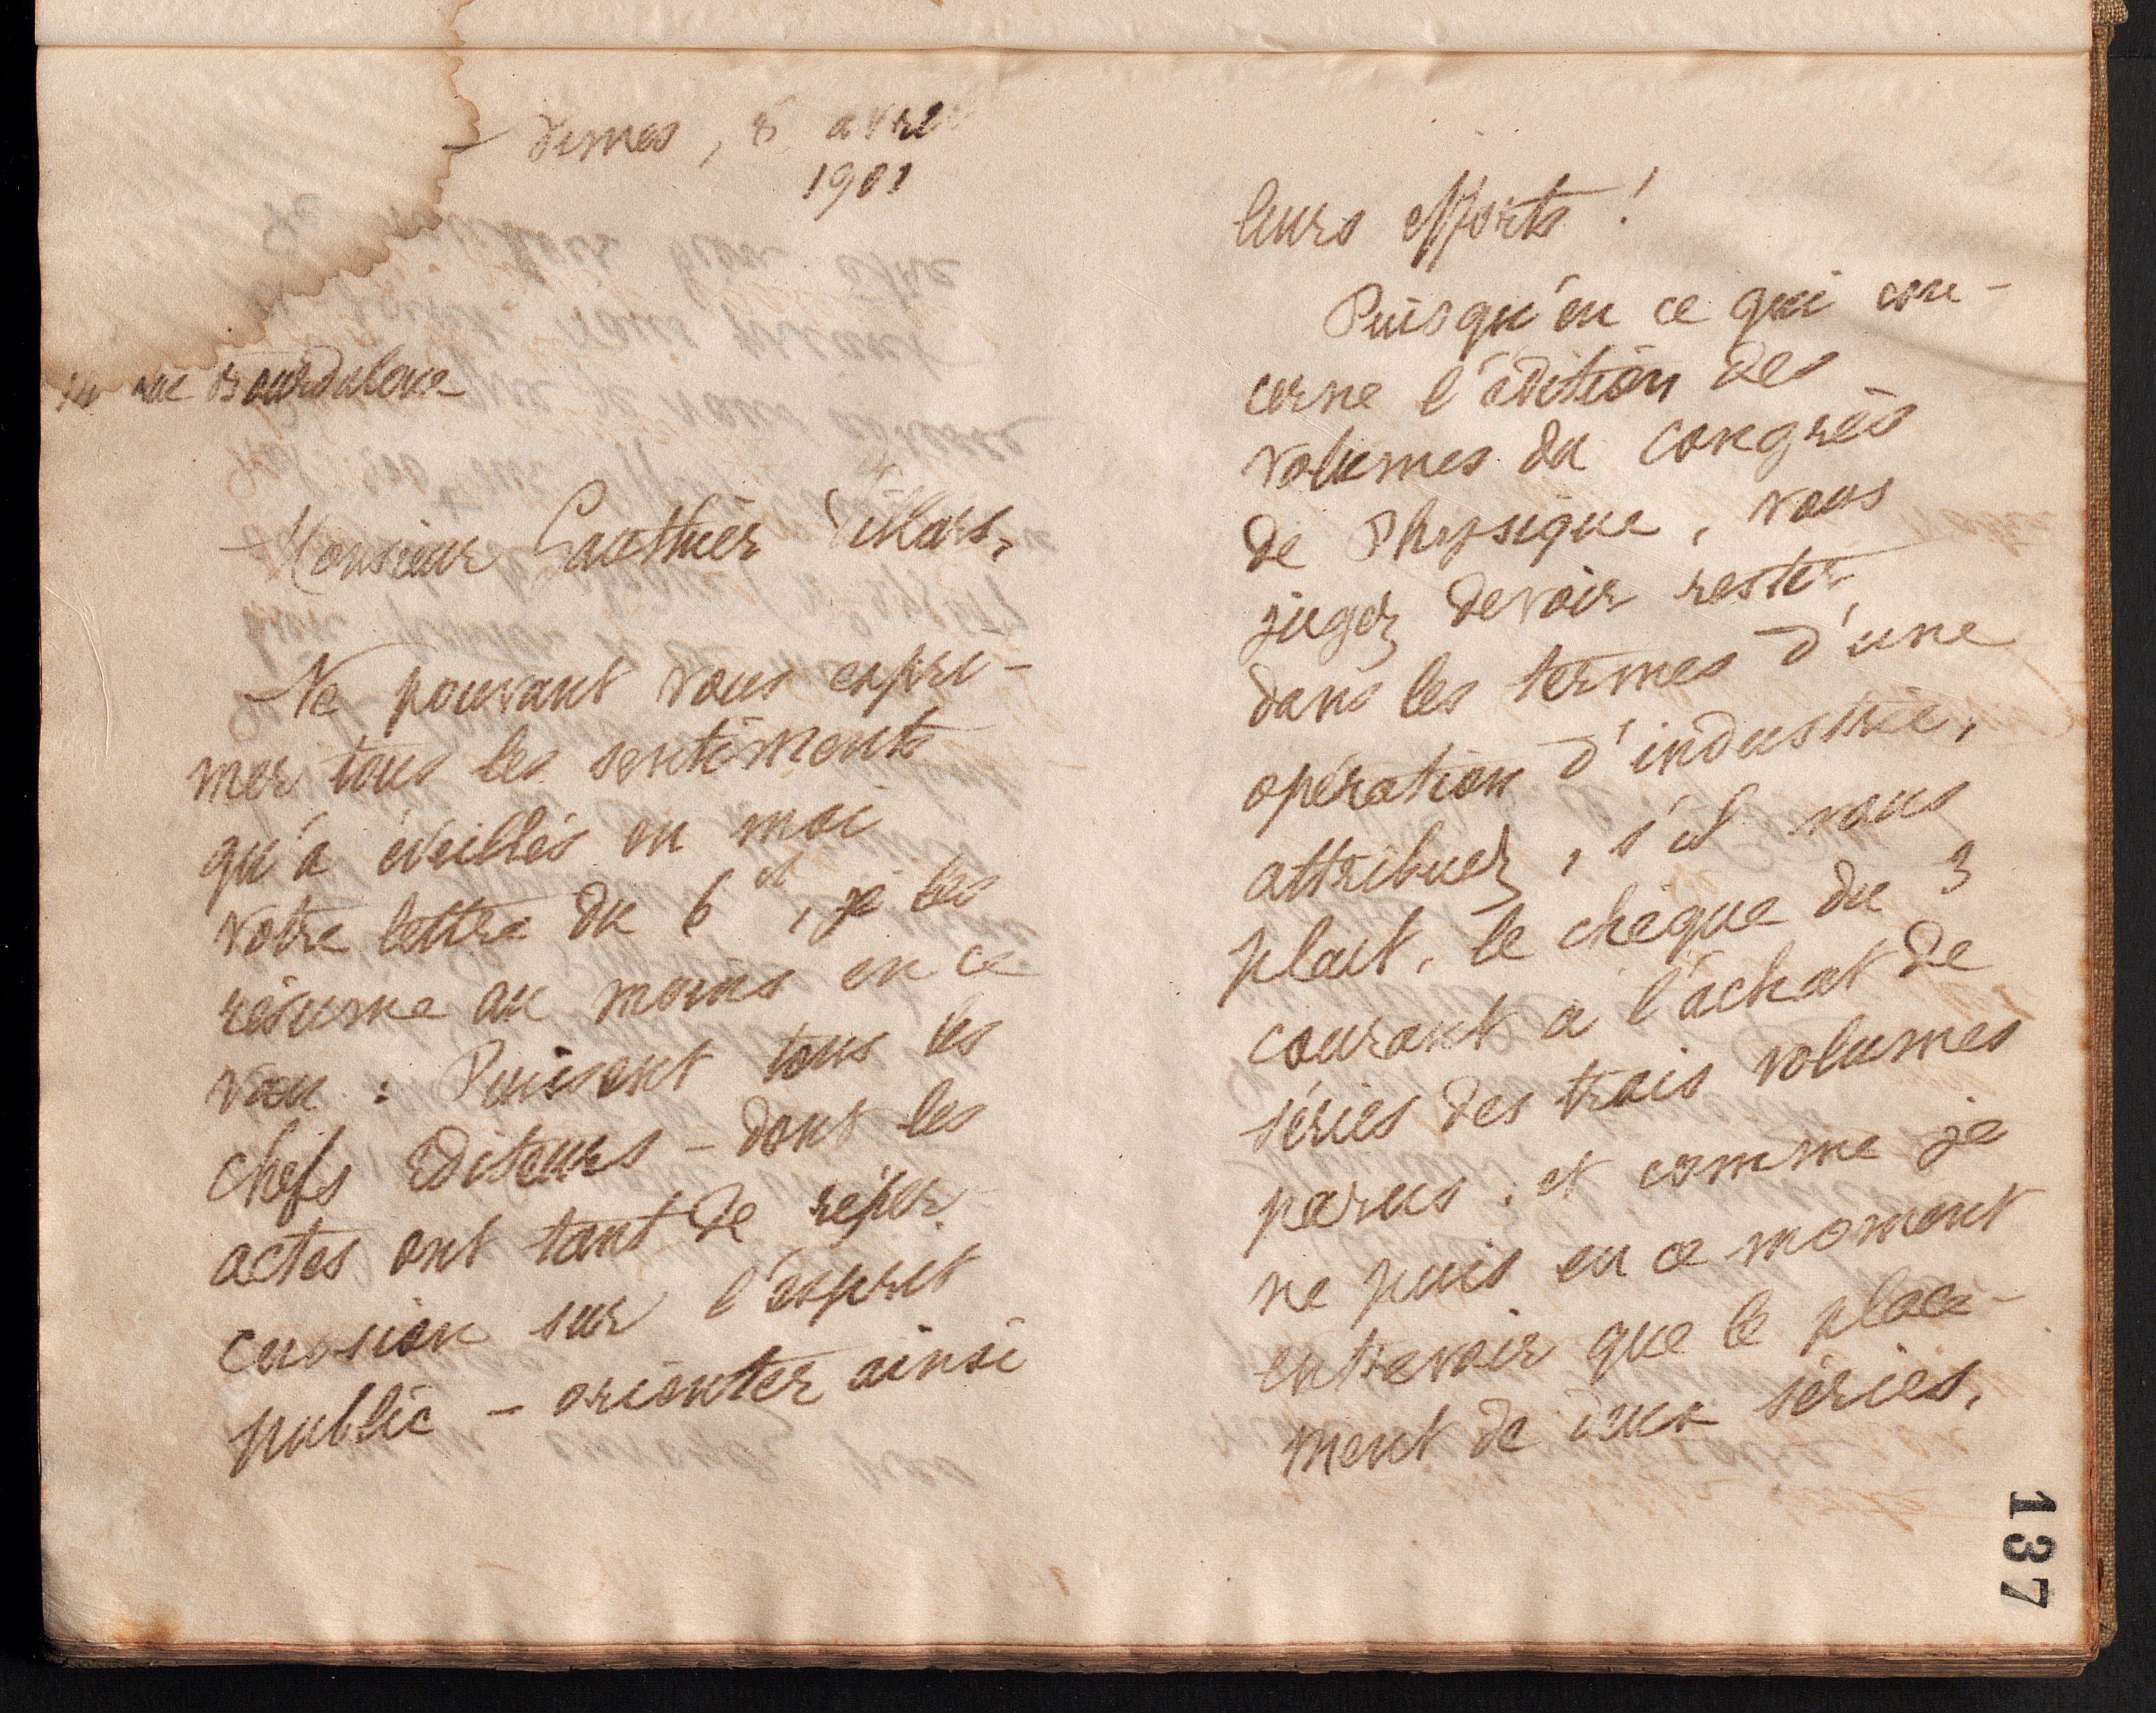 Nimes, 8 avril
1901
14 rue Bourdaloue
Monsieur Gauthier Villars,
Ne pouvant vous expri-
mer tous les sentiments
qu'a éveillés en moi
votre lettre du 6 ct, je les
résume au moins en ce
vœu : Puissent tous les
chefs éditeurs - dont les
actes ont tant de réper-
cussion sur l'esprit
public - orienter ainsi
leurs efforts !
Puisqu'en ce qui con-
cerne l'édition des
volumes du Congrès
de Physique, vous
jugez devoir rester
dans les termes d'une
opération d'industrie,
attribuez, s'il vous
plait, le chèque du 3
courant à l'achat de
séries des trois volumes
parus, et comme je
ne puis en ce moment
entrevoir que le place-
ment de deux séries,
137